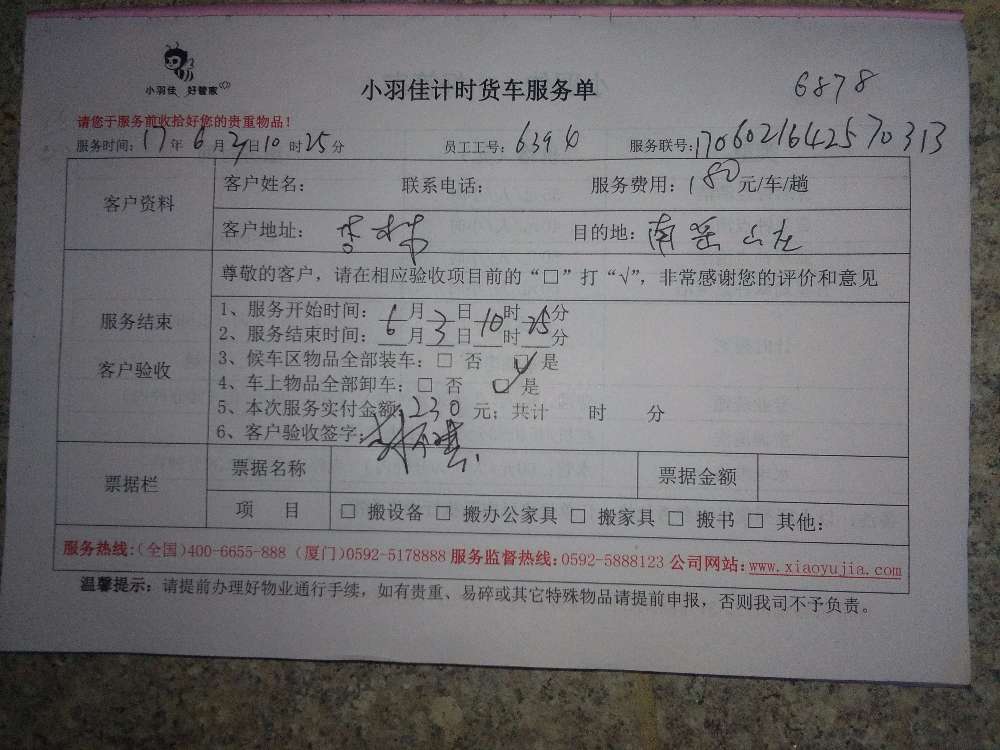 小羽佳 好管家
小羽佳计时货车服务单
6878
请您于服务前收拾好您的贵重物品!
服务时间:17年6月3日10时25分 员工工号:6394 服务联号:1706021642570313
客户资料
客户姓名: 联系电话: 服务费用:180元/车/趟
客户地址:杏林 目的地:南
尊敬的客户，请在相应验收项目前的“□”打“√”，非常感谢您的评价和意见
服务结束
客户验收
1、服务开始时间: 月 日 时 分
2、服务结束时间:6月3日10时25分
3、候车区物品全部装车:□ 否 ☑ 是
4、车上物品全部卸车:□ 否 ☑ 是
5、本次服务实付金额:230元；共计 时 分
6、客户验收签字:
票据栏
票据名称 票据金额
项 目 □ 搬设备 □ 搬办公家具 □ 搬家具 □ 搬书 □ 其他:
服务热线:(全国)400-6655-888 (厦门)0592-5178888 服务监督热线:0592-5888123 公司网站:www.xiaoyujia.com
温馨提示:请提前办理好物业通行手续，如有贵重、易碎或其它特殊物品请提前申报，否则我司不予负责。